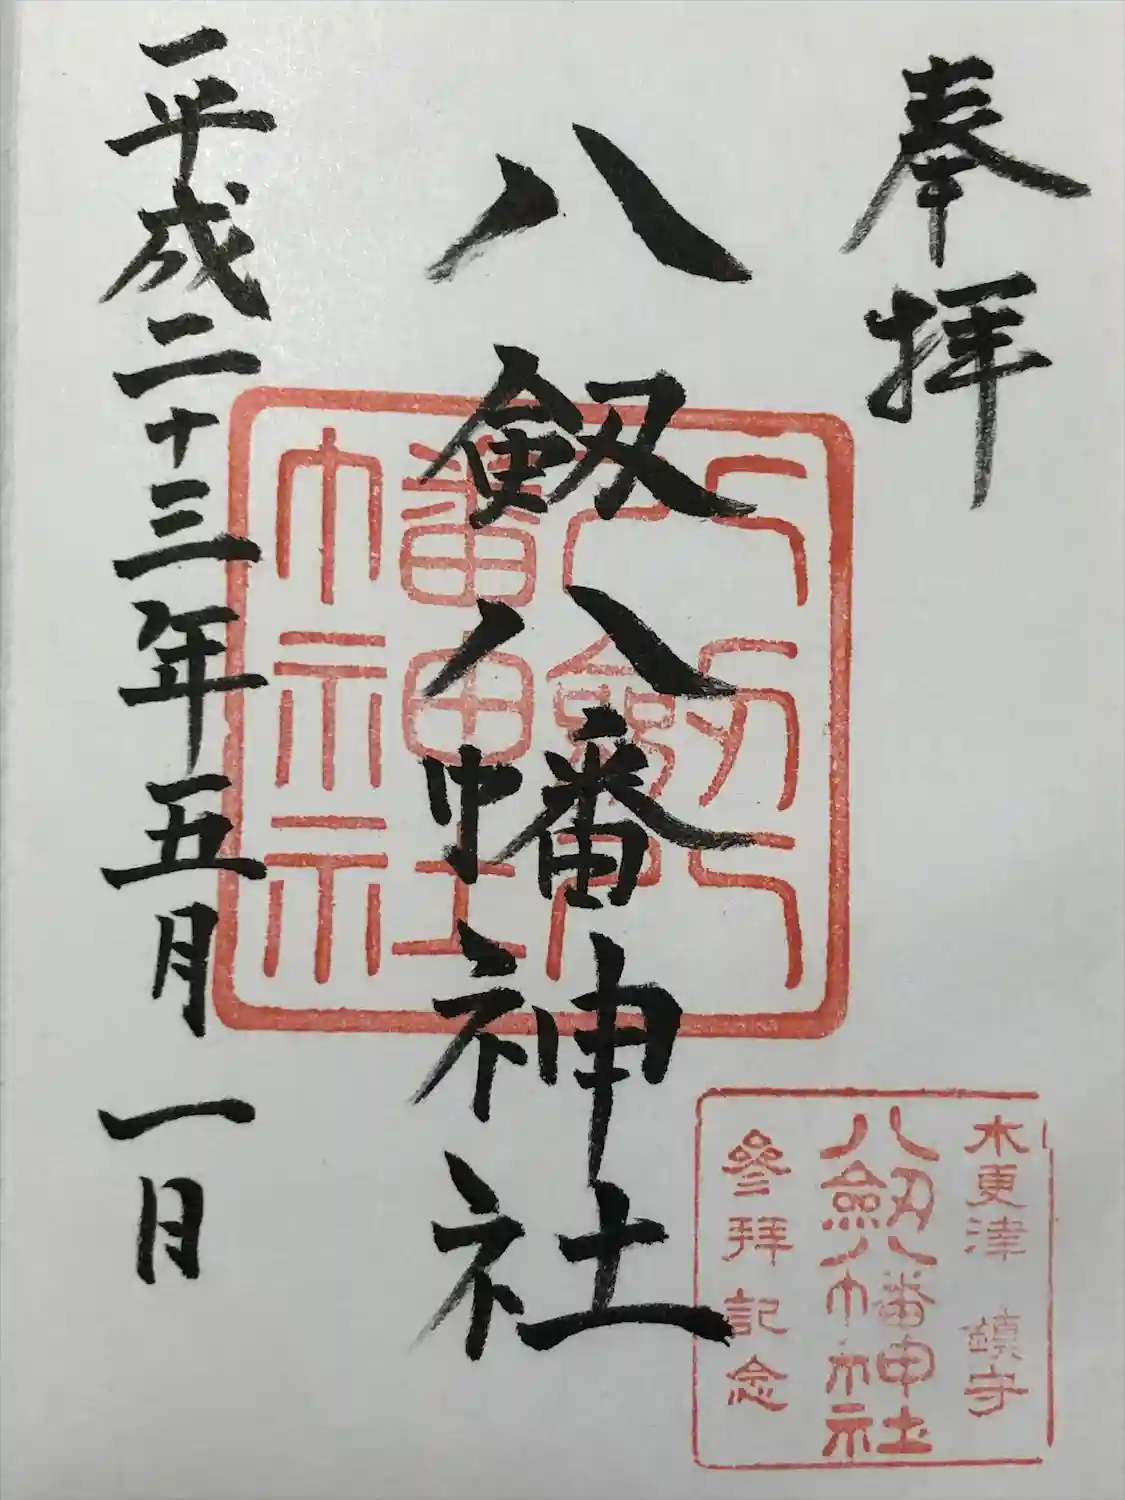 奉拝
八剱八幡神社
平成二十三年五月一日
八剱八幡神社
木更津 鎮守
八剱八幡神社
參拜記念